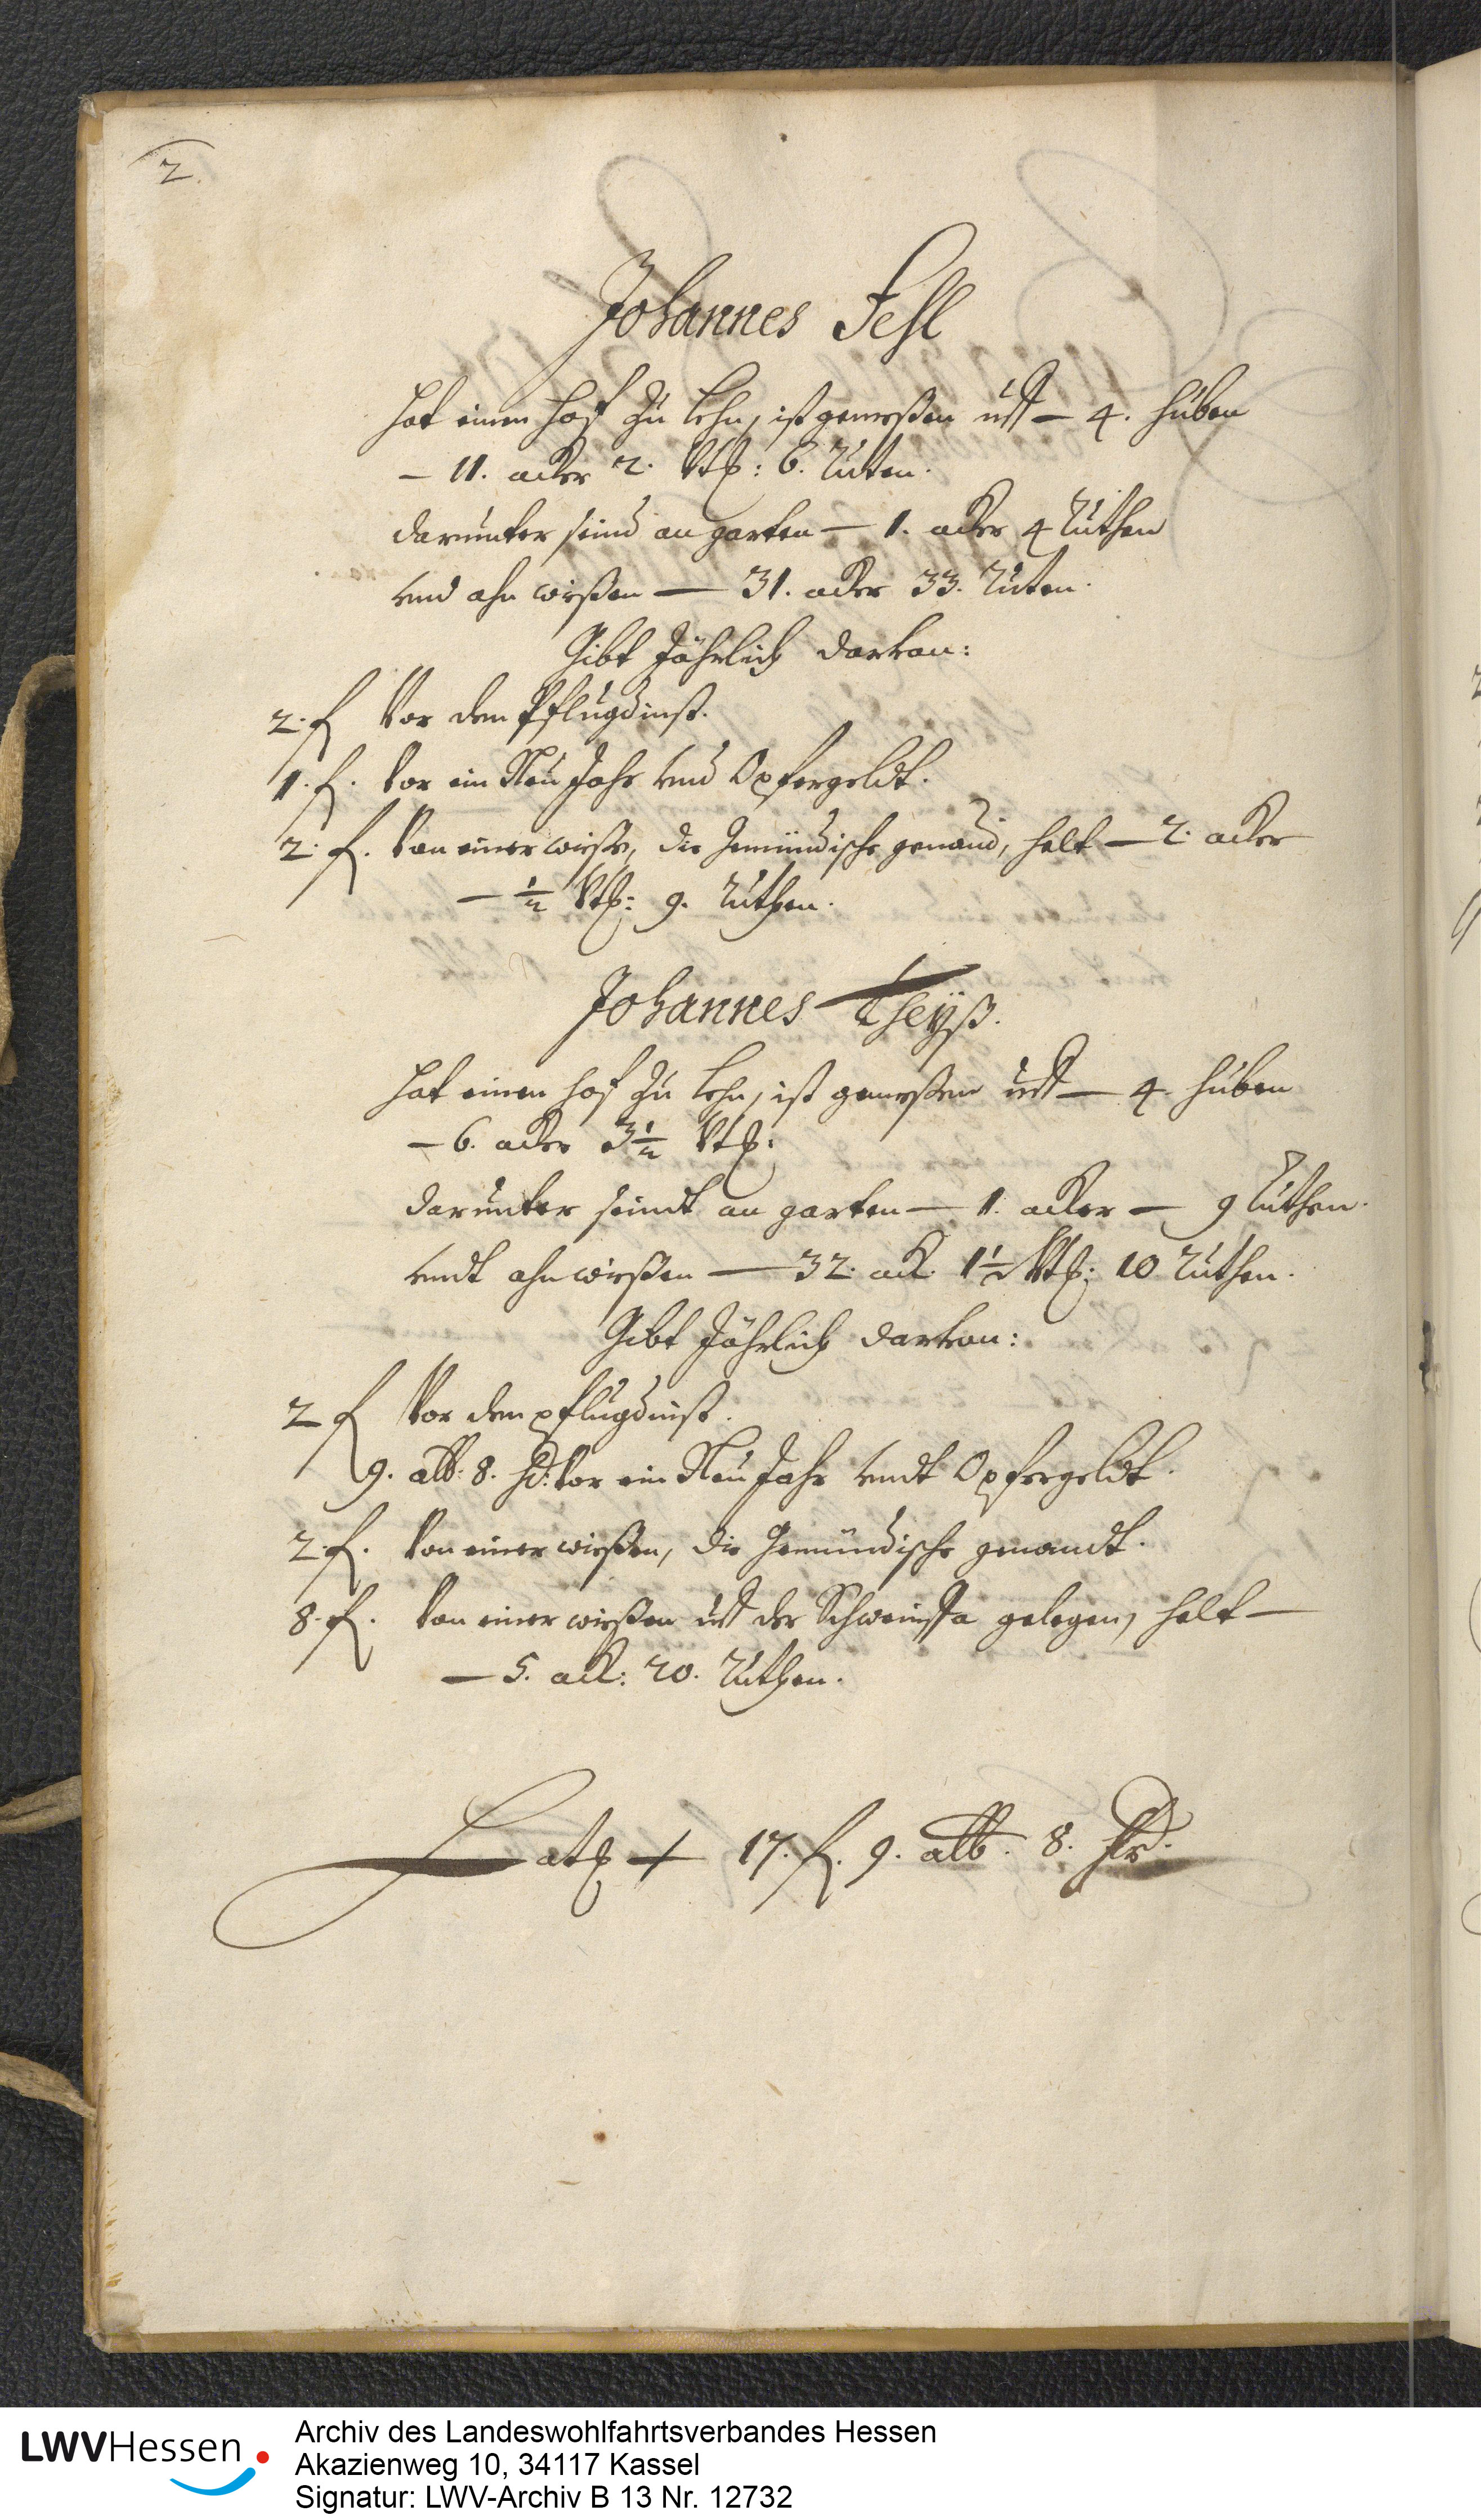 2.
Johannes Fehl
Hat einen Hoff zu Lehn, ist gemeßen uff – 4. Huben
– 11. acker 2. Vtl: 6. Ruten.
Darunter seind an garten – 1. acker 4 Ruthen
vnd ahn wießen – 31. acker 33. Ruten.
Gibt Jährlich darvon:
2. f Vor den Pflugdinst.
1. f. Vor ein Neu Jahr vnd Opfergeldt.
2. f. Von einer wieße, die Gemündische genand, helt – 2. acker
– ½ Vtl: 9. Ruthen.
Johannes Theÿß.
Hat einen Hoff zu Lehn, ist gemeßen uff – 4. Huben
– 6. acker 3½ Vtl:
Darunter seindt an garten – 1. acker – 9 Ruthen.
vndt ahn wießen – 32. ack. 1½ Vtl: 10 Ruthen.
Gibt Jährlich darvon:
2 f Vor den pflugdinst.
9. alb: 8. hl: Vor ein Neu Jahr vndt Opfergeldt.
2. f. Von einer wießen, die Gemündische genandt.
8. f. Von einer wießen uff der gelegen, helt –
– 5. ack: 20. Ruthen.
Lat 17. f. 9. alb. 8. hlr.
LWVHessen
Archiv des Landeswohlfahrtsverbandes Hessen
Akazienweg 10, 34117 Kassel
Signatur: LWV-Archiv B 13 Nr. 12732